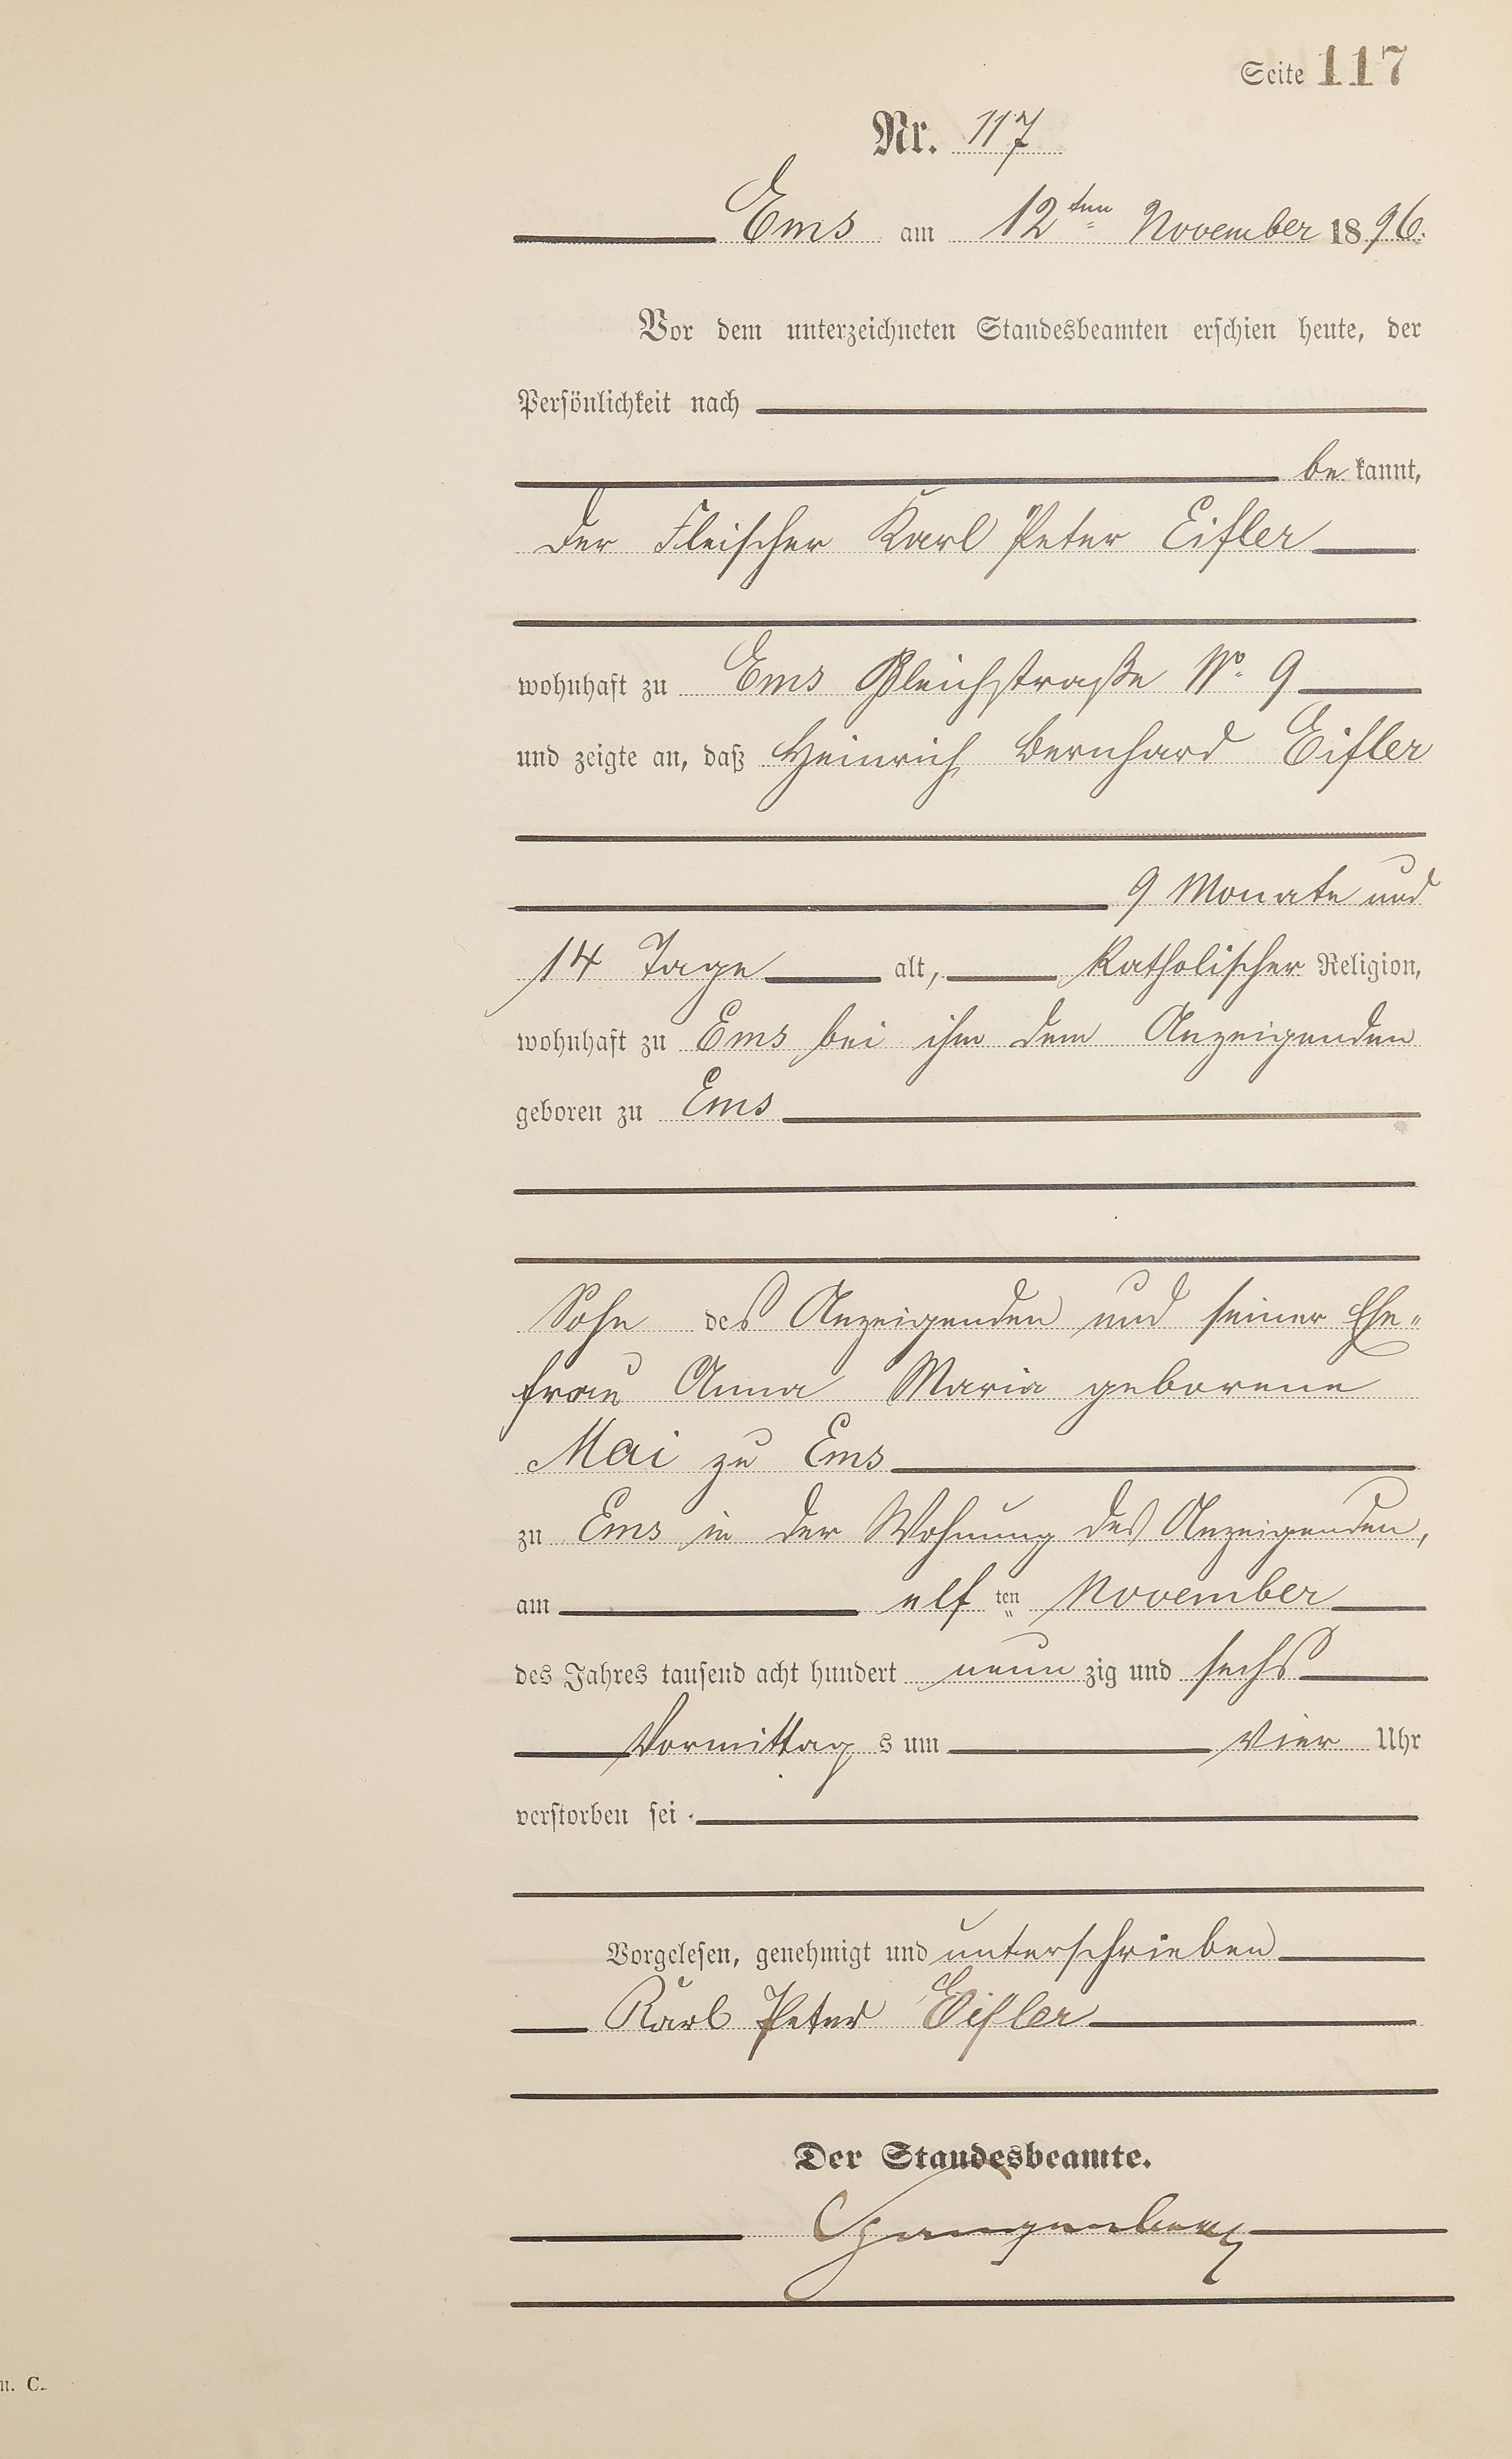 Seite 117
Nr. 117
Ems am 12ten November 1896.
Vor dem unterzeichneten Standesbeamten erschien heute, der
Persönlichkeit nach
bekannt,
der Fleischer Karl Peter Eifler
wohnhaft zu Ems Bleichstraße No. 9
und zeigte an, daß Heinrich Bernhard Eifler
9 Monate und
14 Tage alt, Katholischer Religion,
wohnhaft zu Ems bei ihm dem Anzeigenden
geboren zu Ems
Sohn des Anzeigenden und seiner Ehe-
frau Anna Maria geborene
Mai zu Ems
zu Ems in der Wohnung des Anzeigenden,
am elf ten November
des Jahres tausend acht hundert neunzig und sechs
Vormittags um vier Uhr
verstorben sei.
Vorgelesen, genehmigt und unterschrieben
Karl Peter Eifler
Der Standesbeamte.
n. C.